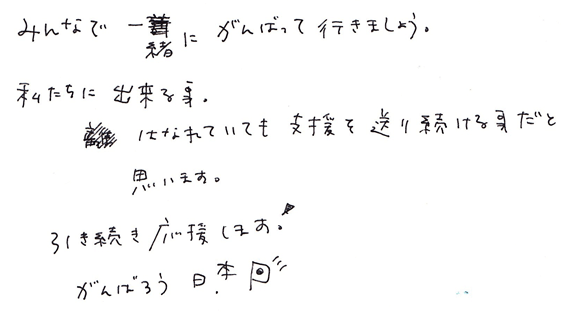 みんなで一緒にがんばって行きましょう。
私たちに出来る事。
はなれていても支援を送り続ける事だと
思います。
引き続き応援します。
がんばろう日本